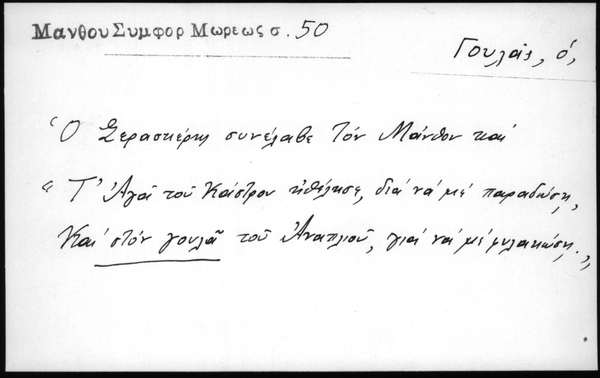 Μανθου Συμφορ Μωρεως σ. 50
Γουλᾶς, ὁ,
Ὁ Σερασκέρης συνέλαβε τόν Μάνθον καί
"Τ' Ἀγᾶ τοῦ Κάστρου ἠθέλησε, διά νά μέ παραδώσῃ,
Καί στόν γουλᾶ τοῦ Ἀναπλιοῦ, γιά νά μέ φυλακώσῃ.,,